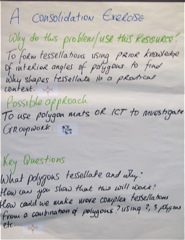 A Consolidation Exercise
Why do this problem/use this Resource?
To form tessellations using prior knowledge
of interior angles of polygons to find
why shapes tessellate in a practical
context.
Possible approach
To use polygon mats or ICT to investigate
Groupwork
Key Questions
What polygons tessellate and why?
How can you show that this will work?
How could we make more complex tessellations
from a combination of polygons? using 2, 3 polygons
etc